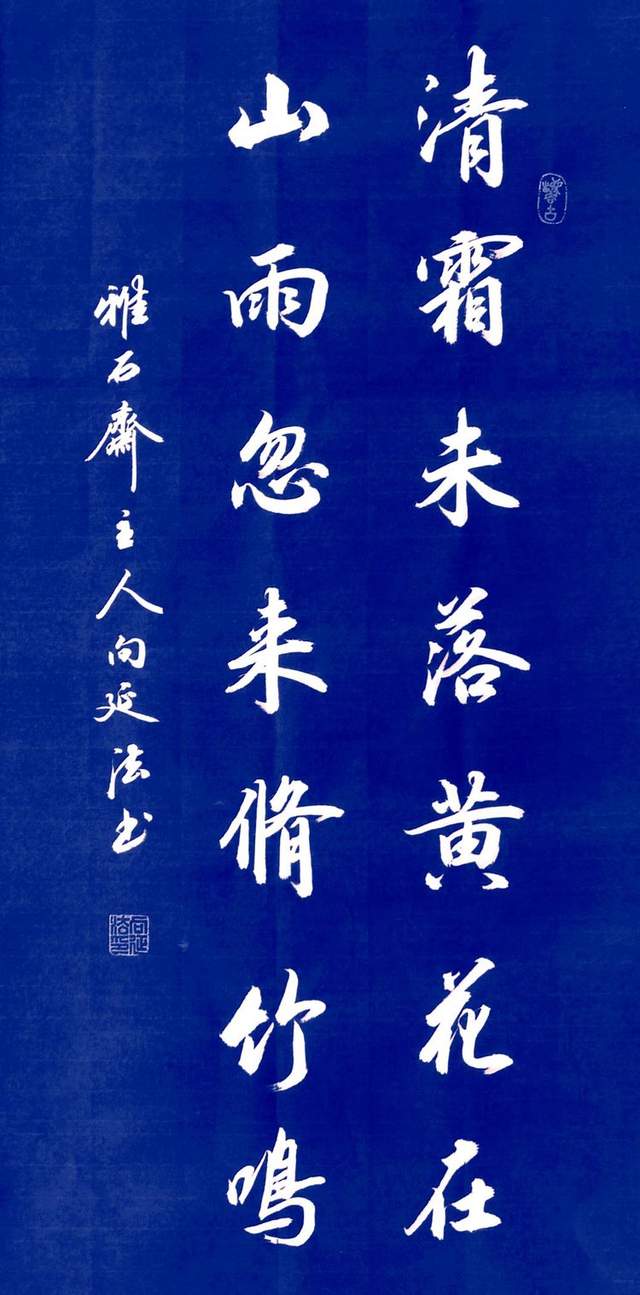 清霜未落黄花在
山雨忽来脩竹鸣
雅石齋主人向延法书
向延法印